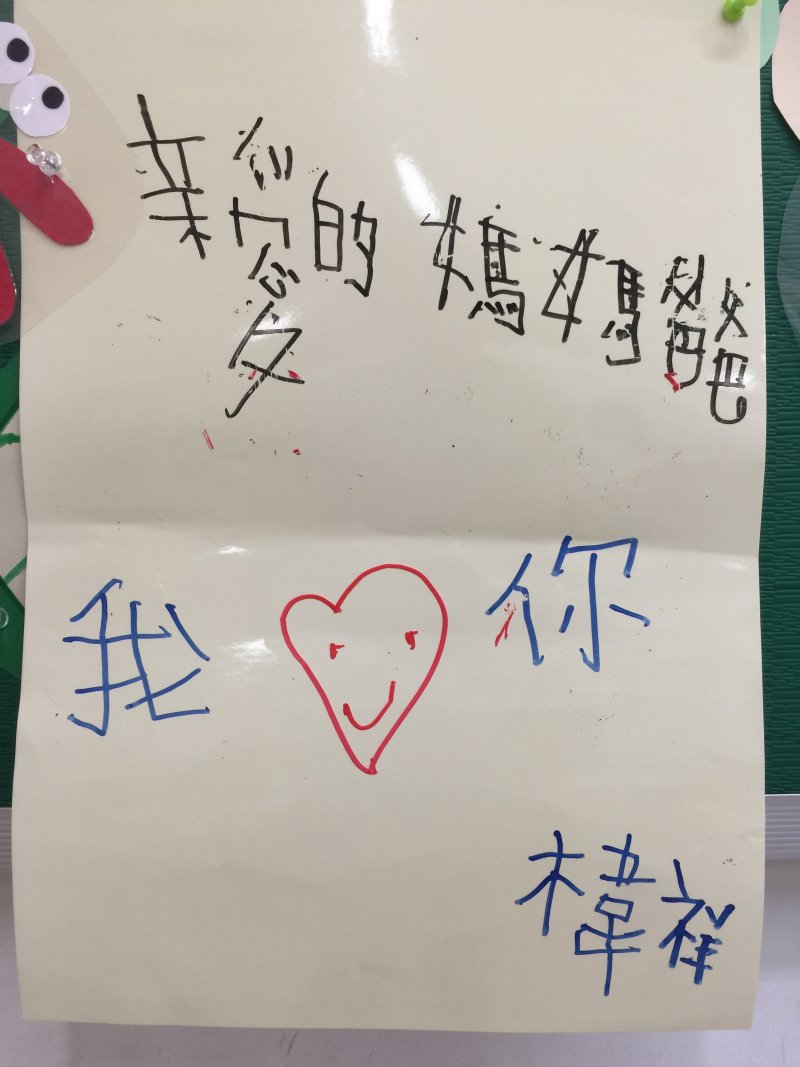 亲愛的 媽媽爸爸
我 你
椲祥